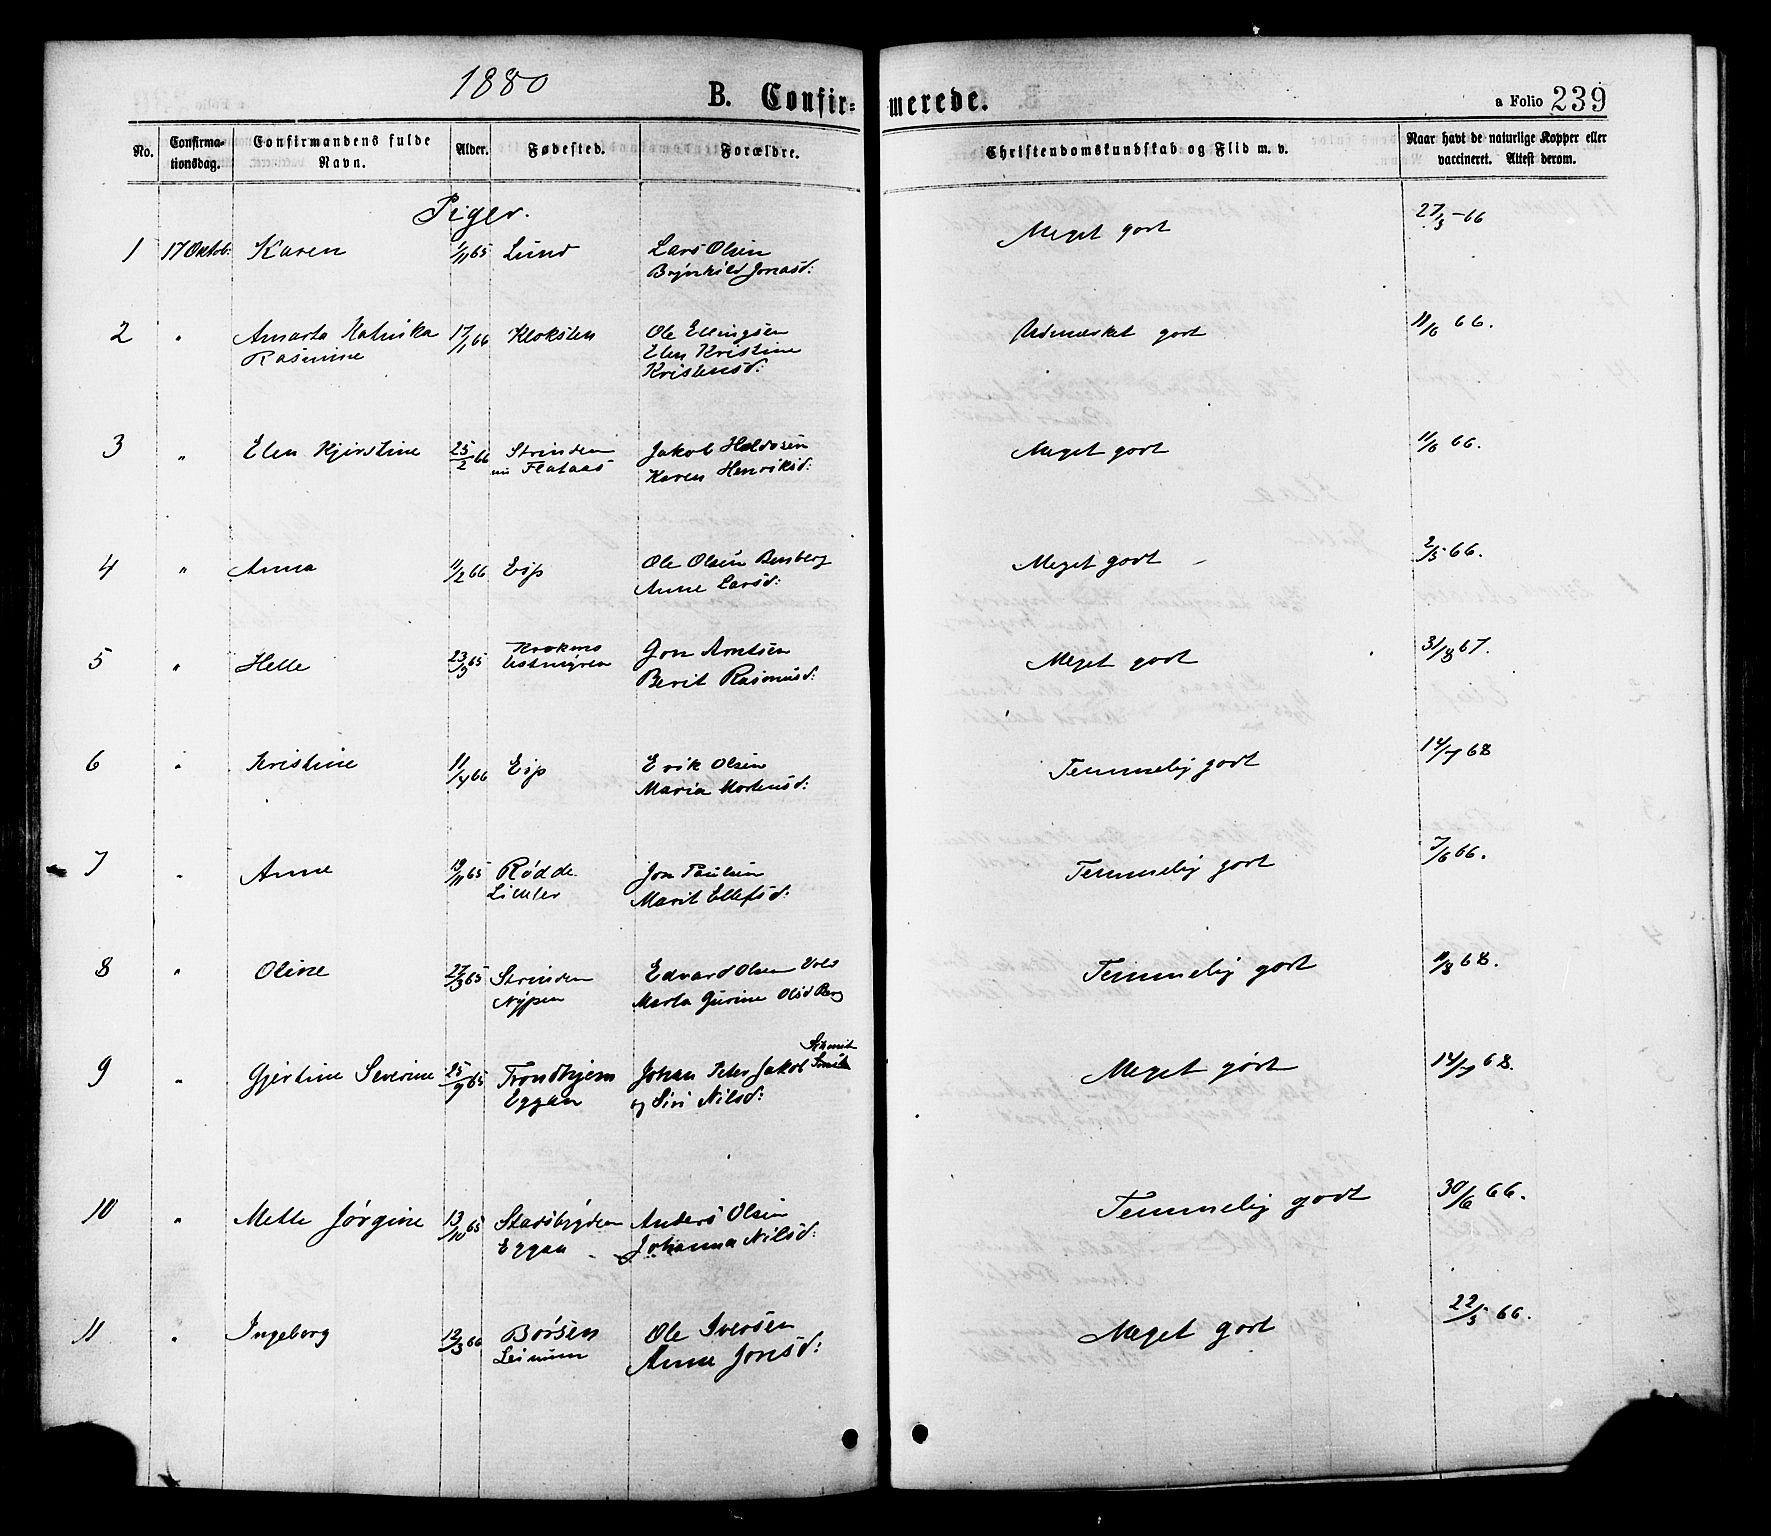 1880
B. Confirmerede.
a Folio 239
No. Confirmationsdag. Confirmandens fulde Navn. Alder. Fødested. Forældre. Christendomskundskab og Flid m. v. Naar havt de naturlige Kopper eller vaccineret. Attest derom.
Piger.
1 17 Oktob: Karen 1/11 65 Lund Lars Olsen Meget godt 27/3-66
Brynhild Jonasd:
2 " Amarta Katrika 17/1 66 Kloksten Ole Ellingsen Udmærket godt 11/6 66.
Rasmine Elen Kristine
Kristensd:
3 " Elen Kjirstine 25/2 66 Strinden Jakob Haldosen Meget godt 11/6 66.
Flataas Karen Henriksd:
4 " Anna 11/2 66 Esp Ole Olsen Bensberg Meget godt 2/5 66.
Anne Larsd:
5 " Helle 23/9 65 Jon Arntsen Meget godt 31/8 67.
Berit Rasmusd:
6 " Kristine 11/4 66 Esp Erik Olsen Temmelig godt 14/7 68
Maria Mortensd:
7 " Anne 19/11 65 Rødde Jon Paulsen Temmelig godt 7/6 66.
Marit Ellefsd:
8 " Oline 27/3 65 Strinden Edvard Olsen Temmelig godt 11/8 68.
Nypen Marta Gurine Olsd Berg
9 " Gjertine Severine 25/9 65 Trondhjem Johan Peter Jakob Schmit Meget godt 14/7 68.
Eggan og Siri Nilsd:
10 " Mette Jørgine 13/10 65 Stadsbygden Anders Olsen Temmelig godt 30/6 66.
Eggan Johanna Nilsd:
11 " Ingeborg 12/3 66 Børsen Ole Iversen Meget godt 22/5 66.
Leinum Anne Jonsd: